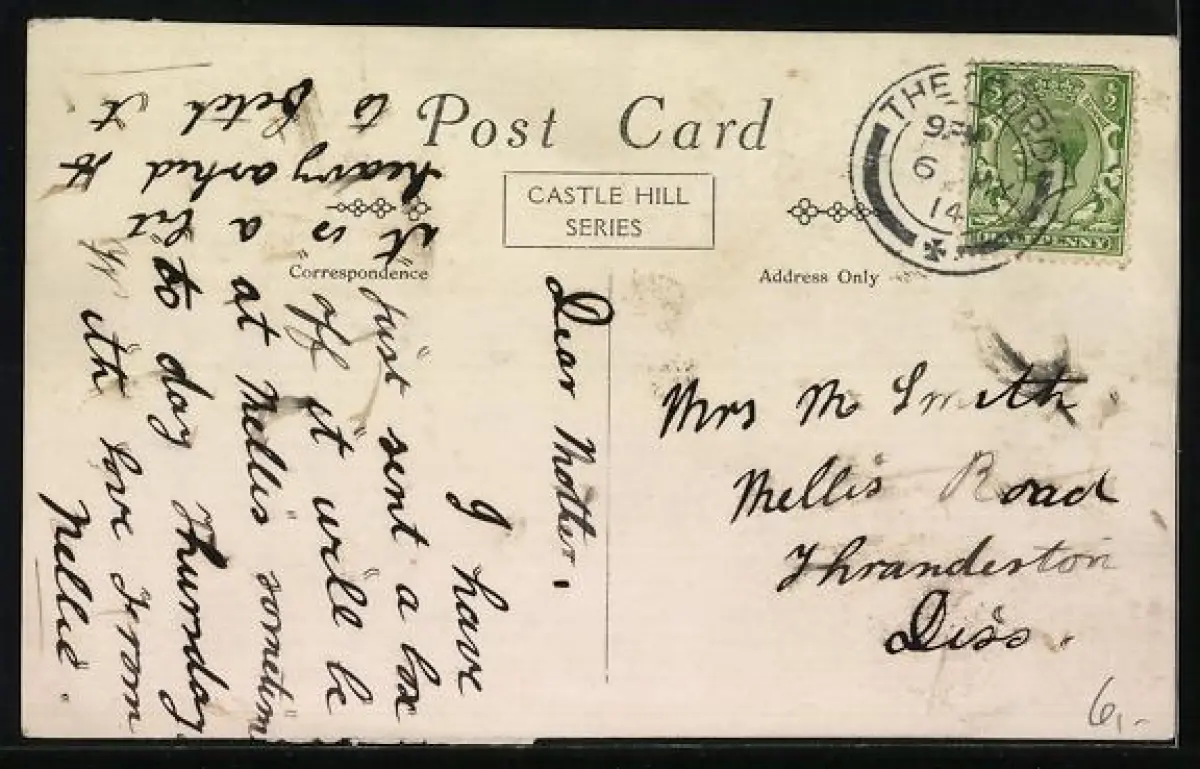 Post Card
CASTLE HILL
SERIES
Correspondence
Address Only
THETFORD
9
6
14
½
HALFPENNY
Dear Mother,
I have
just sent a box
off it will be
at Mellis sometime
to day Thursday
With love from
Nellie.
it is a bit
heavy asked H
to fetch it.
Mrs M Smith
Mellis Road
Thrandeston
Diss.
6,-